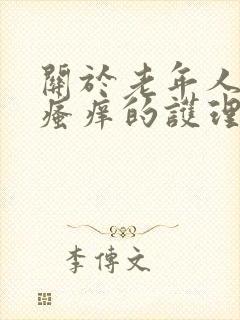 關於老年人
瘙癢的護理
李傳文